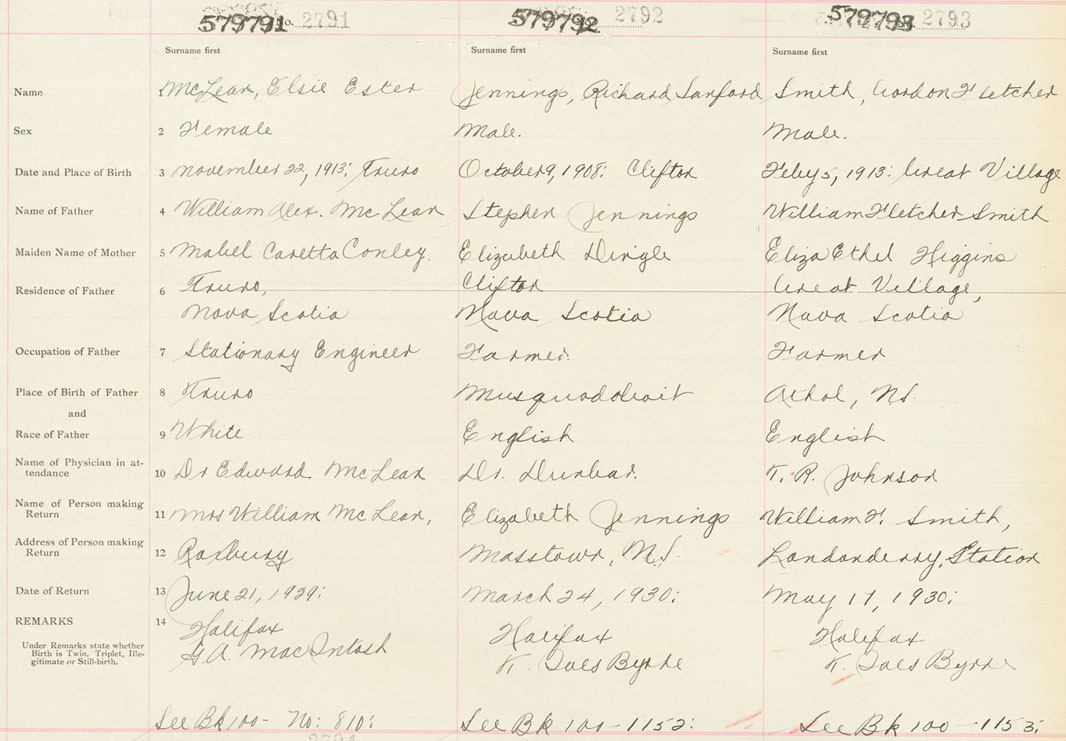 579791 No. 2791 579792 2792 579793 2793
Surname first Surname first Surname first
Name 1 McLean, Elsie Ester Jennings, Richard Sanford Smith, Gordon Fletcher
Sex 2 Female Male. Male.
Date and Place of Birth 3 November 22, 1913: Truro October 9, 1908: Clifton Feby 5, 1913: Great Village
Name of Father 4 William Alex. McLean Stephen Jennings William Fletcher Smith
Maiden Name of Mother 5 Mabel Caretta Conley. Elizabeth Dingle Eliza Ethel Higgins
Residence of Father 6 Truro, Clifton Great Village,
Nova Scotia Nova Scotia Nova Scotia
Occupation of Father 7 Stationary Engineer Farmer. Farmer
Place of Birth of Father 8 Truro Musquodoboit Athol, N.S.
and
Race of Father 9 White English English
Name of Physician in at-
tendance 10 Dr Edward McLean Dr. Dunbar. T. R. Johnson
Name of Person making
Return 11 Mrs William McLean, Elizabeth Jennings William F. Smith,
Address of Person making
Return 12 Roxbury Masstown, N.S. Londonderry, Station
Date of Return 13 June 21, 1929: March 24, 1930: May 17, 1930:
REMARKS 14 Halifax Halifax Halifax
Under Remarks state whether
Birth is Twin, Triplet, Ille-
gitimate or Still-birth. G.A. MacIntosh Byrne Byrne
See Bk 100- No: 810: See Bk 100-1152: See Bk 100-1153: